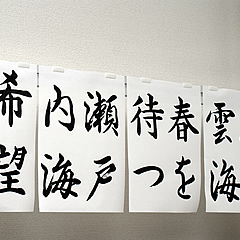 雲海
春を
待つ
瀬戸
内海
希望